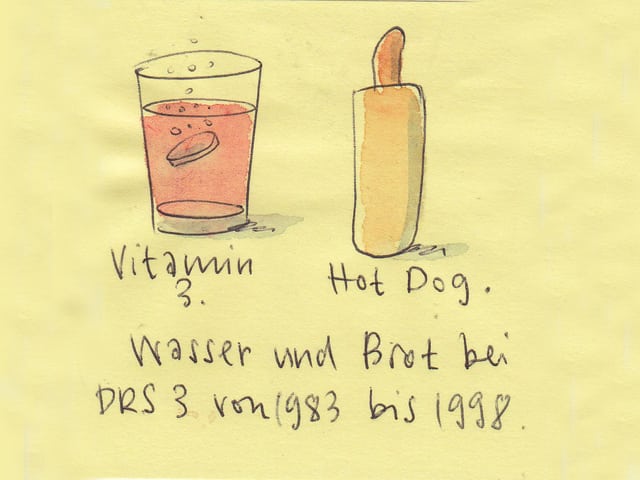 Vitamin
3.
Hot Dog.
Wasser und Brot bei
DRS 3 von 1983 bis 1998.